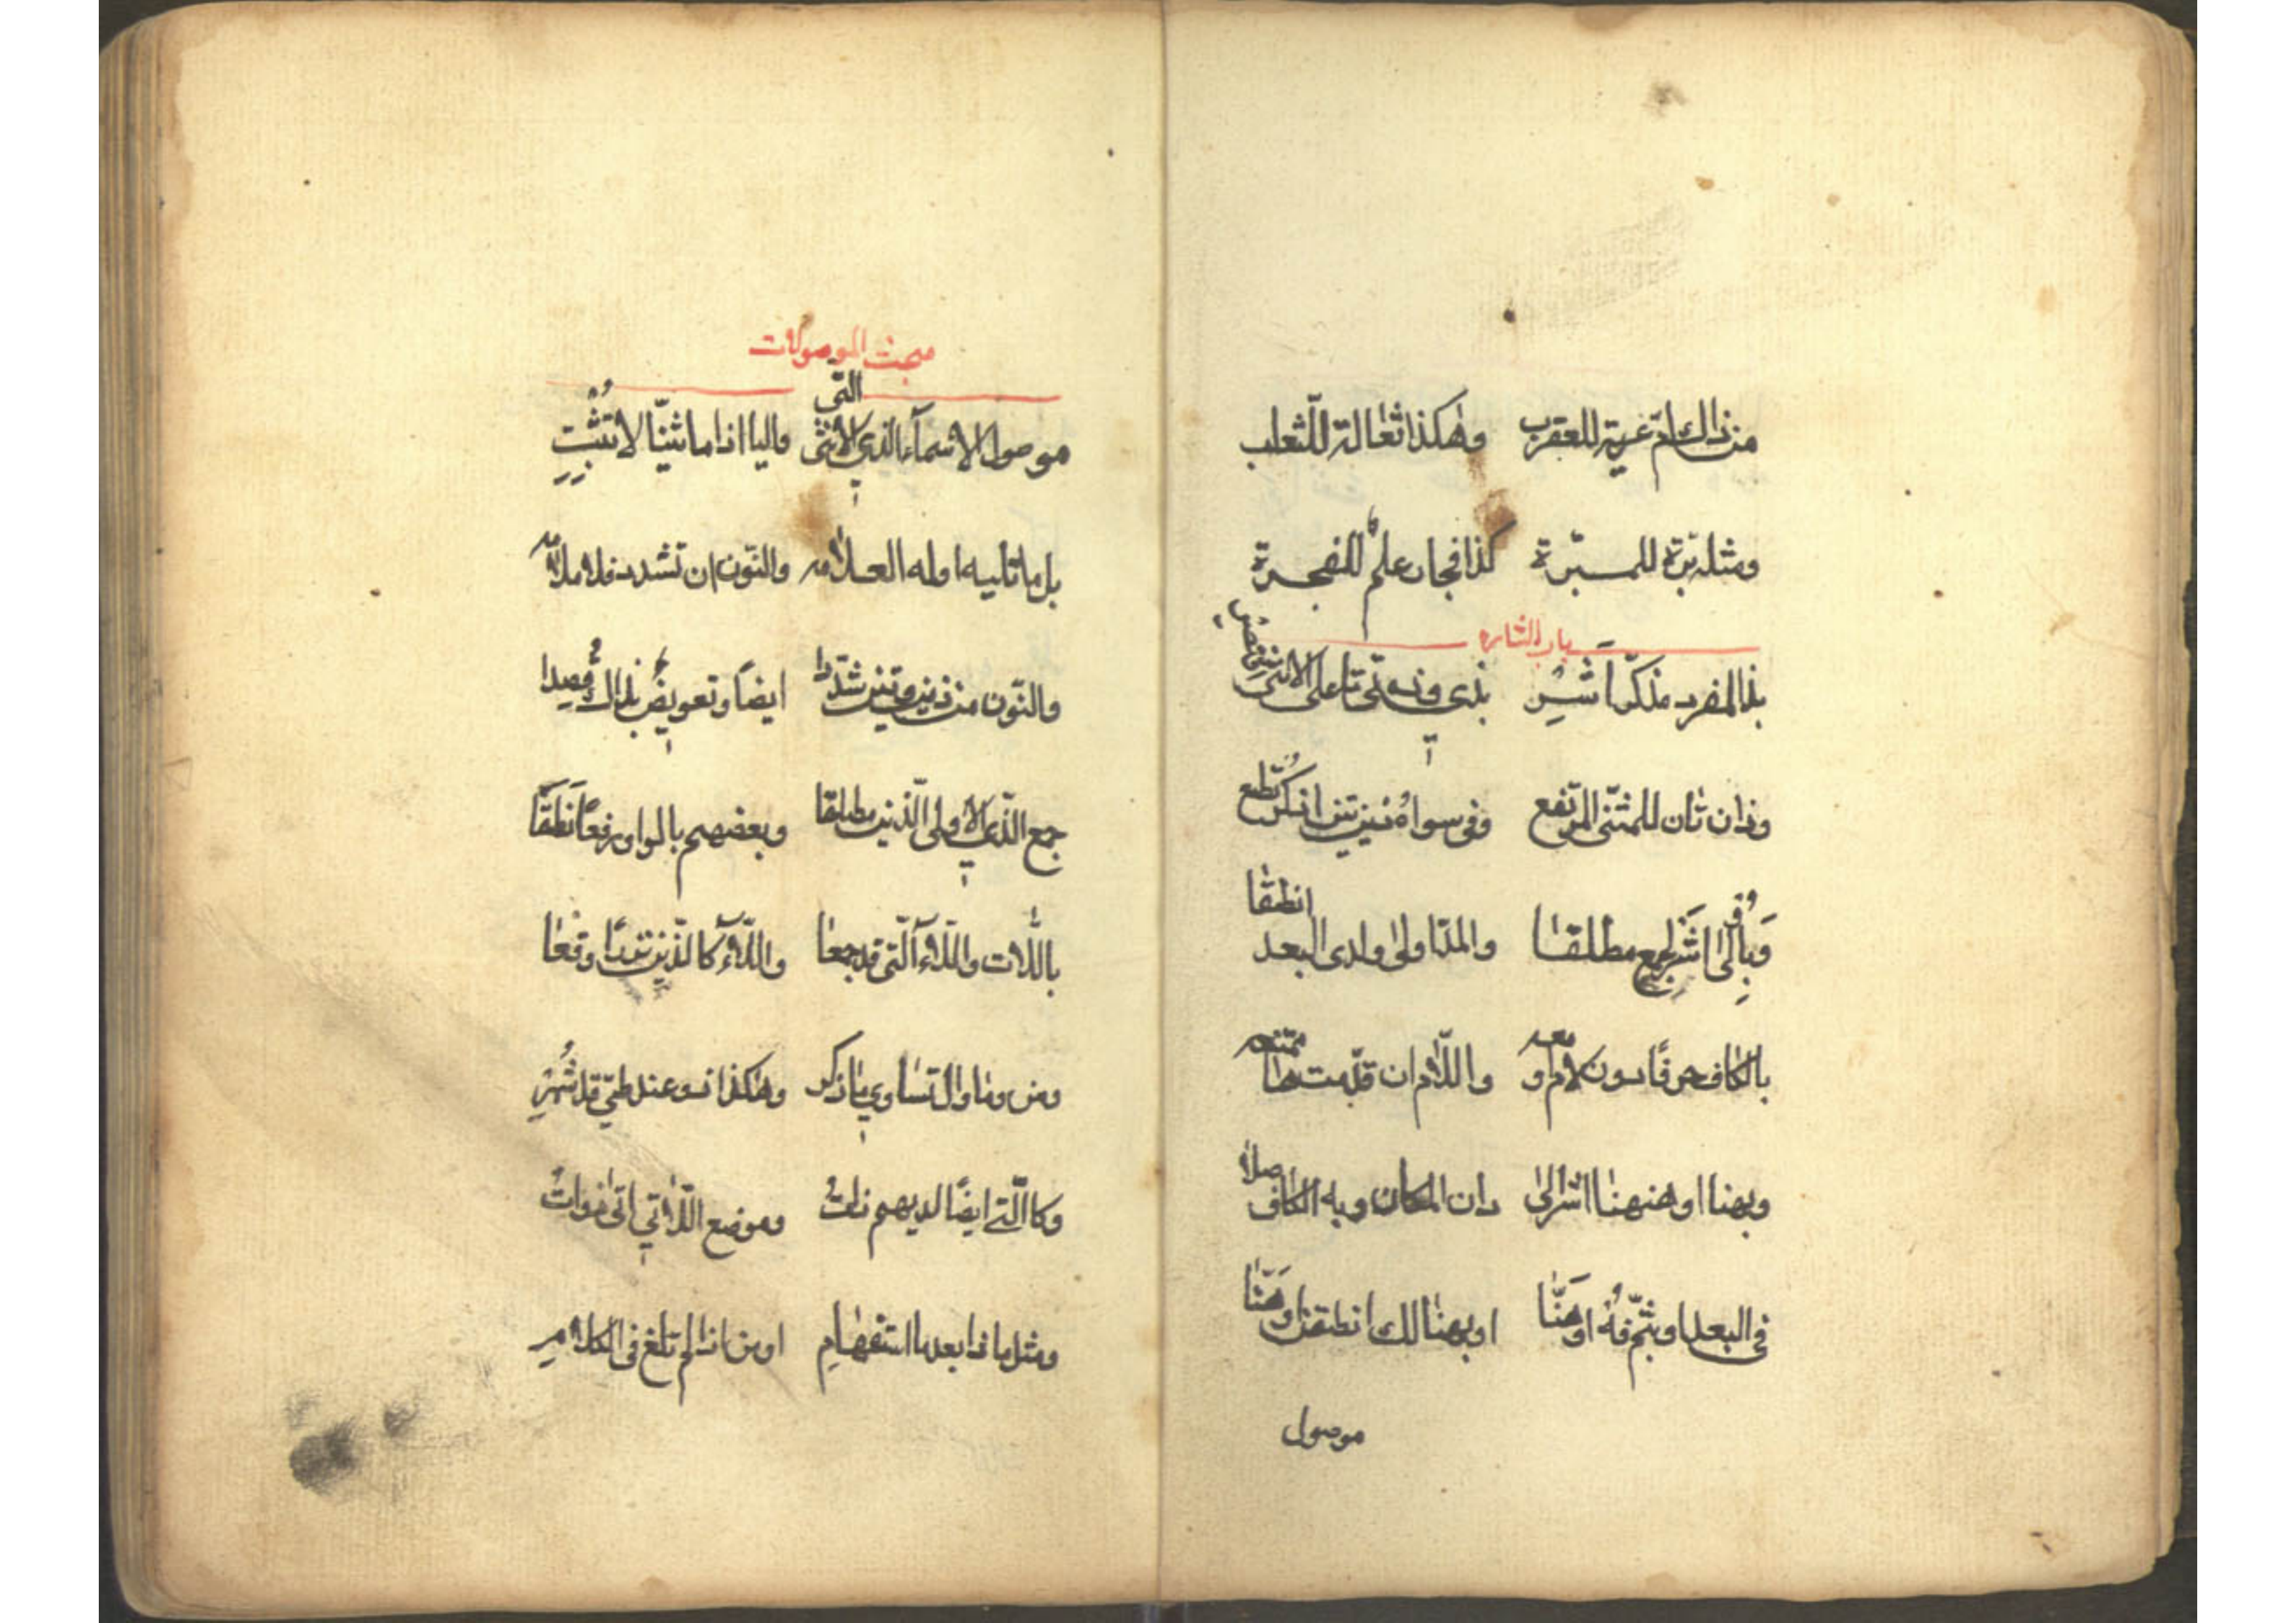 من ذاك ام عريه للعقرب وهكذا ثعالة للثعلب
ومثله برة للمبرة كذا فجار علم للفجرة
باب اشاره
بذا لمفرد مذكر اشر بذي وذه تي تا على الانثى اقتصر
وذان تان للمثنى المرتفع وفي سواه ذين تين اذكر تطع
وبالى اشر لجمع مطلقا والمد اولى ولدى البعد انطقا
بالكاف حرفا دون لام او معه واللام ان قدمت ها ممتنعه
وبهنا او ههنا اشر الى دان المكان وبه الكاف صلا
في البعد او بثم فه او هنا او بهنالك انطقن او هنا
موصول
مبحث الموصولات
موصول الاسماء الذي الانثى التي واليا اذا ما ثنيا لا تثبت
بل ما تليه اوله العلامه والنون ان تشدد فلا ملامه
والنون من ذين وتين شددا ايضا وتعويض بذاك قصدا
جمع الذي الاولى الذين مطلقا وبعضهم بالواو رفعا نطقا
باللات واللاء التي قد جمعا واللاء كالذين نزرا وقعا
ومن وما وال تساوي ما ذكر وهكذا ذو عند طي قد شهر
وكالتي ايضا لديهم ذات وموضع اللاتي اتى ذوات
ومثل ماذا بعد ما استفهام او من اذا لم تلغ في الكلام